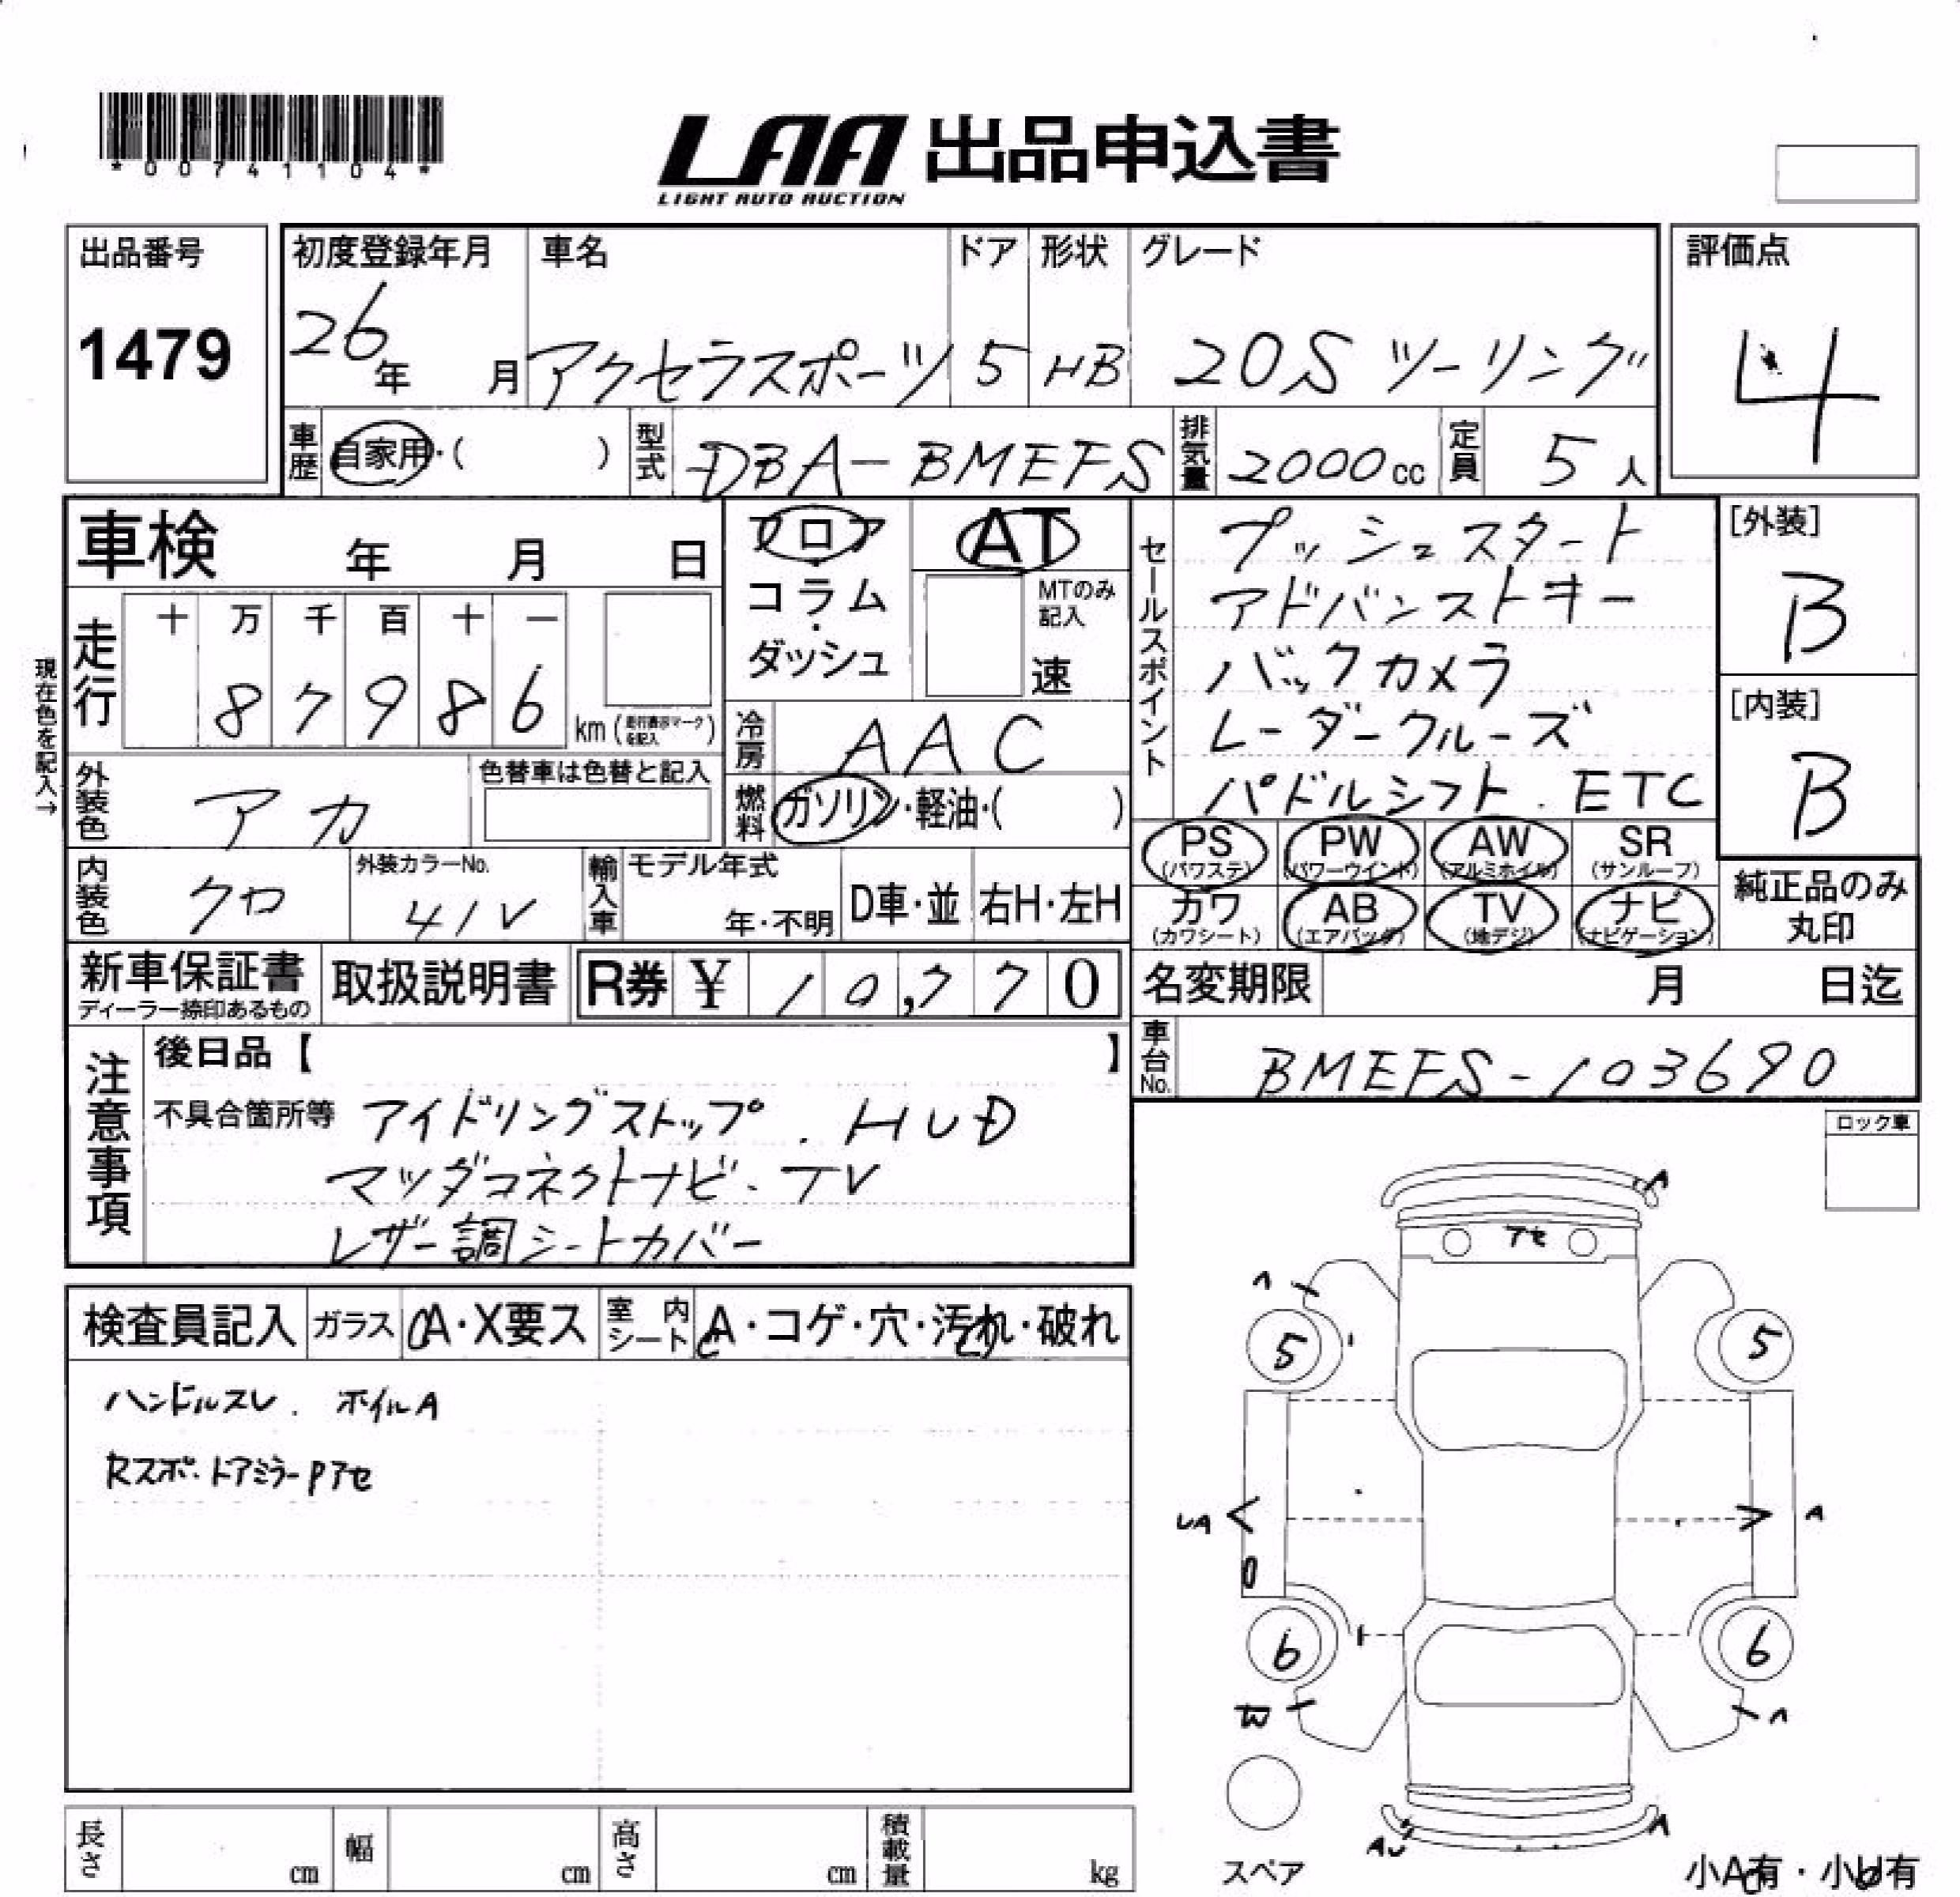 *00741104*
LAA 出品申込書
LIGHT AUTO AUCTION
出品番号 初度登録年月 車名 ドア 形状 グレード 評価点
1479 26年 月 アクセラスポーツ 5 HB 20S ツーリング 4
車歴 自家用・( ) 型式 DBA-BMEFS 排気量 2000cc 定員 5人
車検 年 月 日 フロア・コラム・ダッシュ AT MTのみ記入 速
セールスポイント プッシュスタート
アドバンストキー
バックカメラ
レーダークルーズ
パドルシフト.ETC
[外装] B
[内装] B
現在色を記入→
走行 十 万 千 百 十 一
8 7 9 8 6 km(走行表示マークを記入)
冷房 AAC
外装色 アカ 色替車は色替と記入 燃料 ガソリン・軽油・( )
PS(パワステ) PW(パワーウインド) AW(アルミホイル) SR(サンルーフ)
カワ(カワシート) AB(エアバッグ) TV(地デジ) ナビ(ナビゲーション)
純正品のみ丸印
内装色 クロ 外装カラーNo. 41V 輸入車 モデル年式 年・不明 D車・並 右H・左H
新車保証書 ディーラー捺印あるもの 取扱説明書 R券 ¥ 10,770 名変期限 月 日迄
車台No. BMEFS-103690
注意事項 後日品【 】
不具合箇所等 アイドリングストップ.HUD
マツダコネクトナビ.TV
レザー調シートカバー
ロック車
検査員記入 ガラス A・X要ス 室内シート A・コゲ・穴・汚れ・破れ
ハンドルスレ. ホイルA
Rスポ.ドアミラーPアセ
A
アセ
A
5 5
UA A
6 6
W A
AU A
スペア
小A有・小U有
長さ cm 幅 cm 高さ cm 積載量 kg